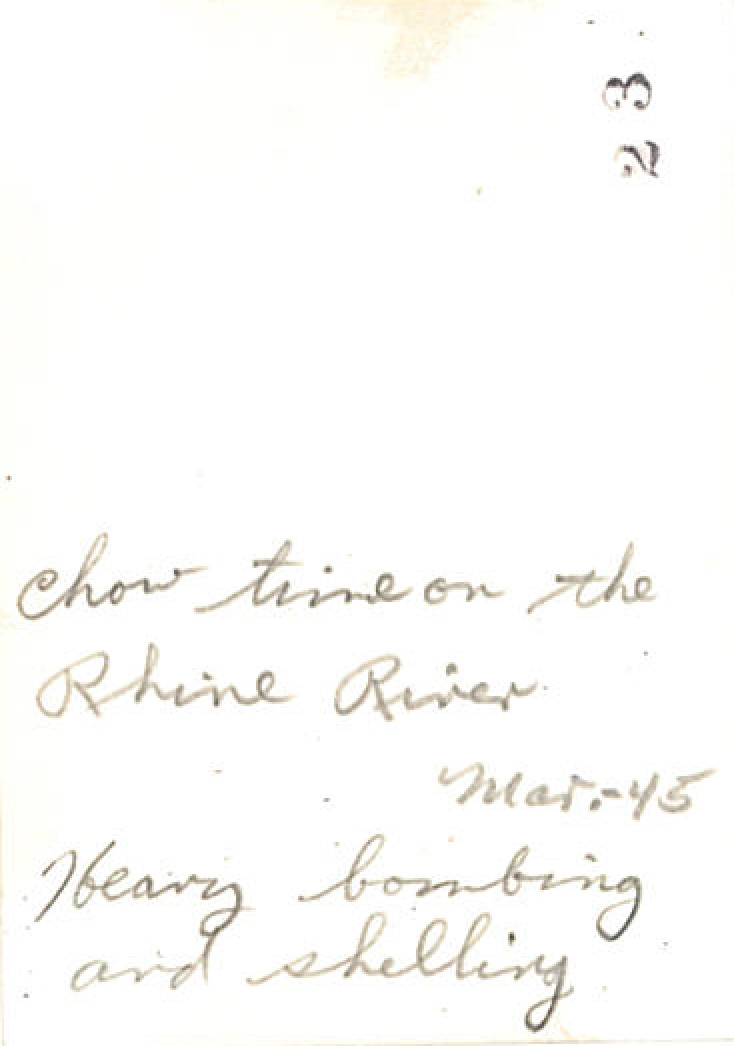 23
Chow time on the
Rhine River
Mar.-45
Heavy bombing
and shelling